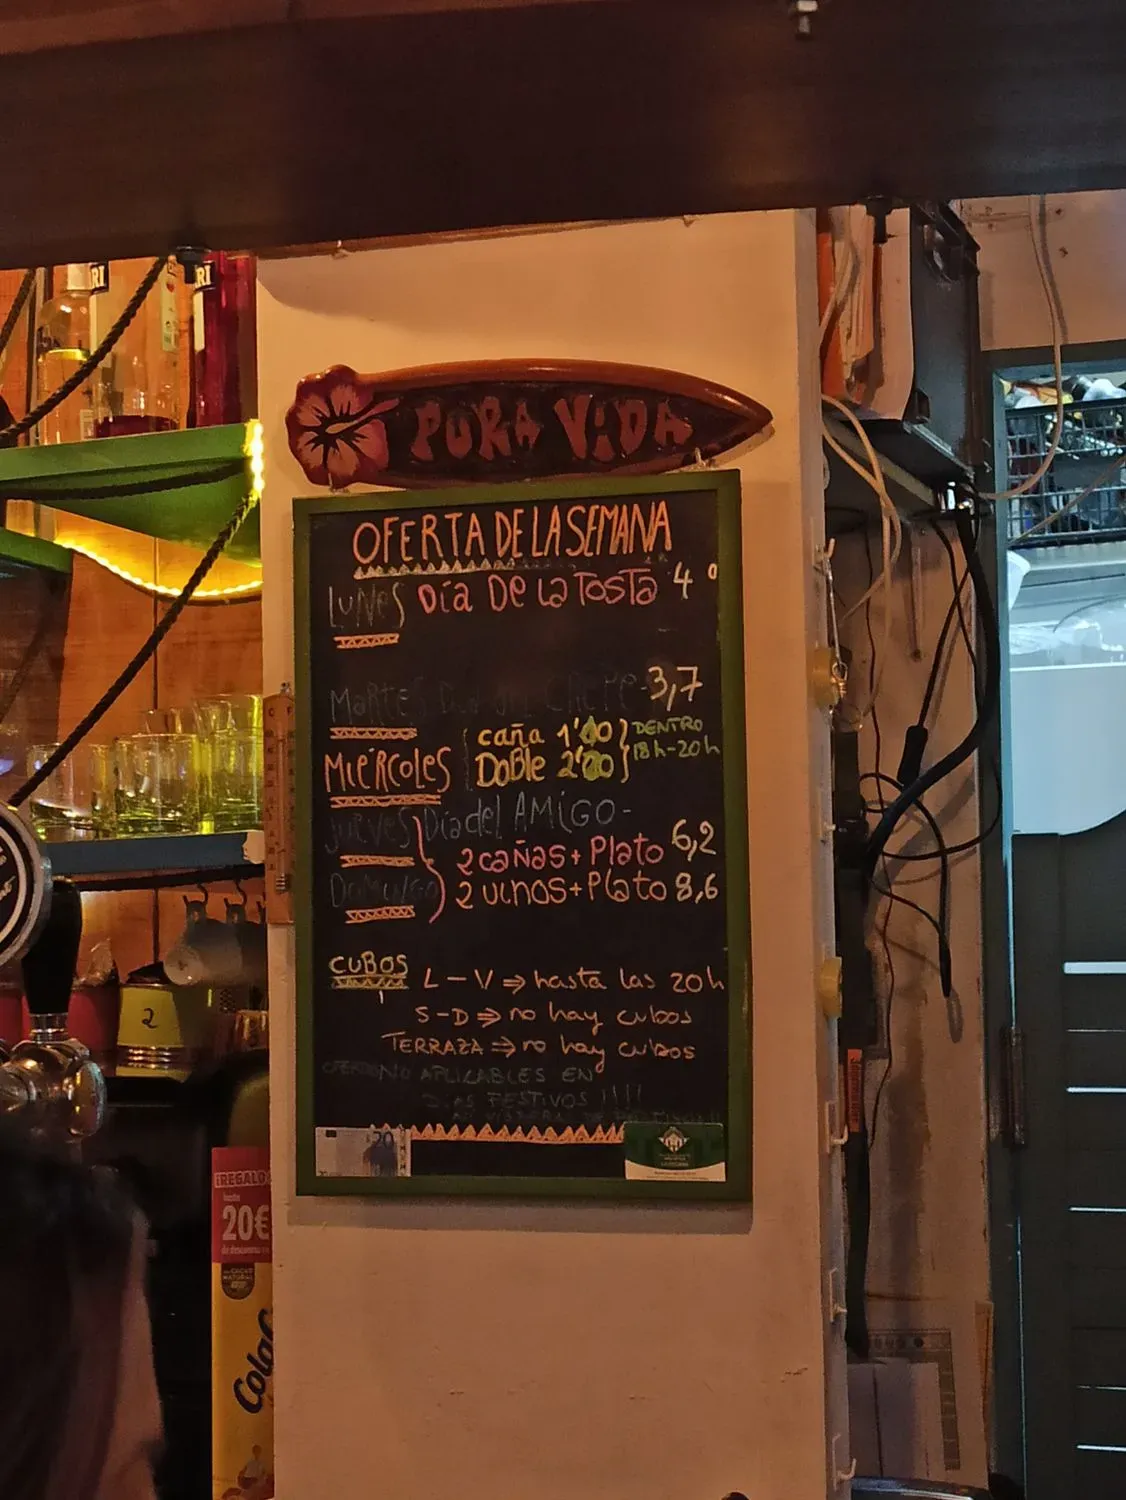 PURA VIDA
OFERTA DE LA SEMANA
LUNES DÍA DE LA TOSTA 4
MARTES CREPE - 3,7
MIÉRCOLES { caña 1'10 } DENTRO
DOBLE 2'20 } 18h-20h
JUEVES Día del AMIGO -
2 cañas + Plato 6,2
DOMINGO 2 vinos + Plato 8,6
CUBOS L - V ⇒ hasta las 20h
S - D ⇒ no hay cubos
TERRAZA ⇒ no hay cubos
NO APLICABLES EN
DÍAS FESTIVOS !!!!
20
¡REGALO
hasta
20€
de descuento
Cola
2
RI
RI